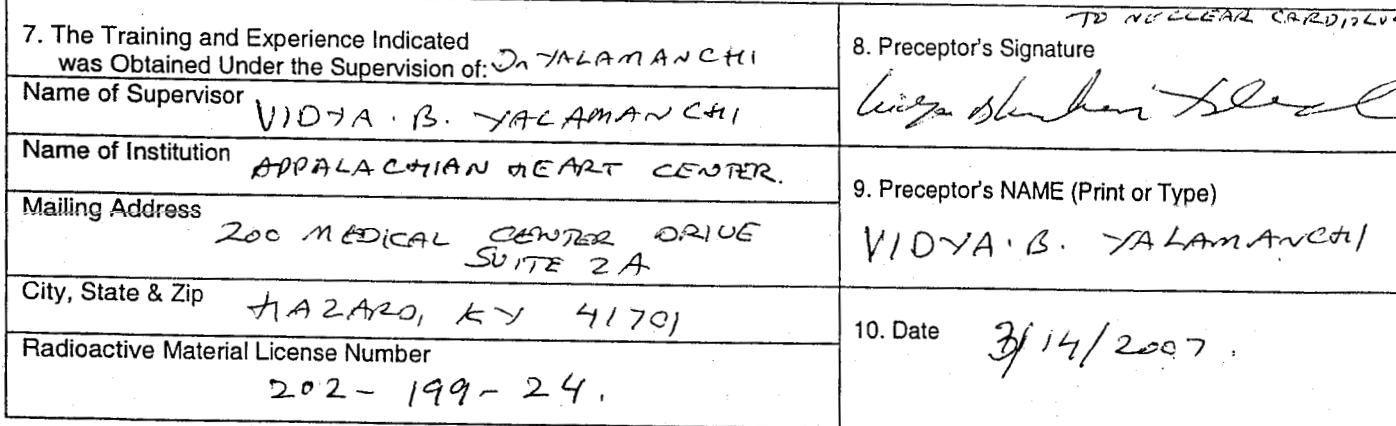 7. The Training and Experience Indicated
was Obtained Under the Supervision of: Dr YALAMANCHI
Name of Supervisor VIDYA. B. YALAMANCHI
Name of Institution APPALACHIAN HEART CENTER.
Mailing Address
200 MEDICAL CENTER DRIVE
SUITE 2A
City, State & Zip HAZARD, KY 41701
Radioactive Material License Number
202-199-24.
TO NUCLEAR
8. Preceptor's Signature
9. Preceptor's NAME (Print or Type)
VIDYA. B. YALAMANCHI
10. Date 3/14/2007.